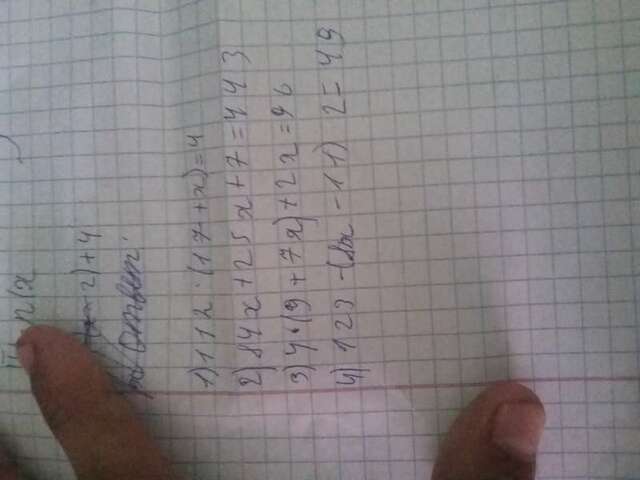 - 2) + 4
ответ:
1) 112 : (17 + x) = 4
2) 84x + 25x + 7 = 443
3) 4 · (9 + 7x) + 2x = 96
4) 123 - (8x - 11) 2 = 49